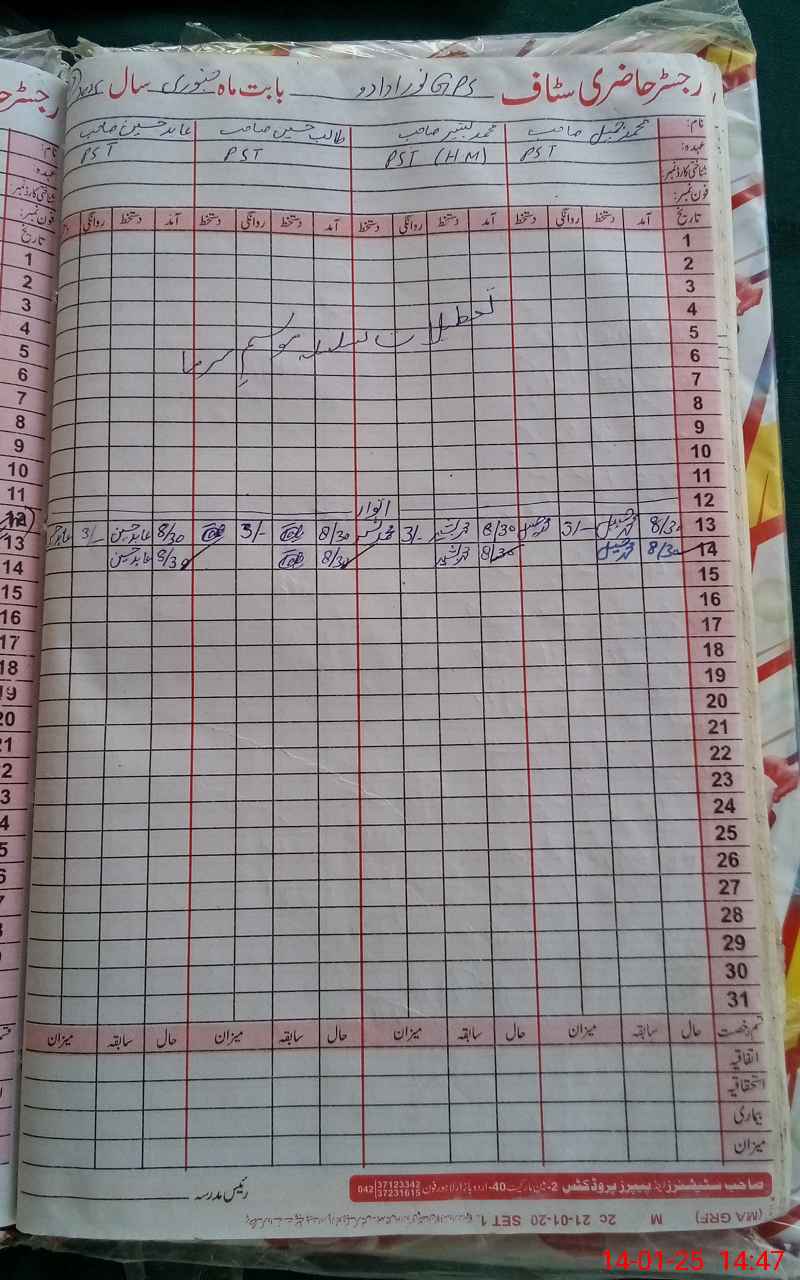 رجسٹر حاضری سٹاف GPS نور ادادو بابت ماہ جنوری سال
نام: محمد جمیل صاحب محمد بشیر صاحب طالب حسین صاحب عابد حسین صاحب
عہدہ: PST PST (HM) PST PST
شناختی کارڈ نمبر
فون نمبر:
تاریخ آمد دستخط روانگی دستخط آمد دستخط روانگی دستخط آمد دستخط روانگی دستخط آمد دستخط روانگی
1
2
3
4
تعطیلات بسلسلہ موسم سرما
5
6
7
8
9
10
11
12 اتوار
13 8/30 3/- 8/30 3/- 8/30 3/- 8/30 عابد حسین 3/-
14 8/30 8/30 8/30 8/30 عابد حسین
15
16
17
18
19
20
21
22
23
24
25
26
27
28
29
30
31
قسم رخصت حال سابقہ میزان حال سابقہ میزان حال سابقہ میزان حال سابقہ میزان
اتفاقیہ
استحقاقیہ
بیماری
میزان
رئیس مدرسہ
صاحب سٹیشنرز اینڈ پیپرز پروڈکٹس 2-ٹمن مارکیٹ 40-اردو بازار لاہور فون 042 37123342 37231615
(MA GRF) M 2c 21-01-20 SET 1
14-01-25 14:47